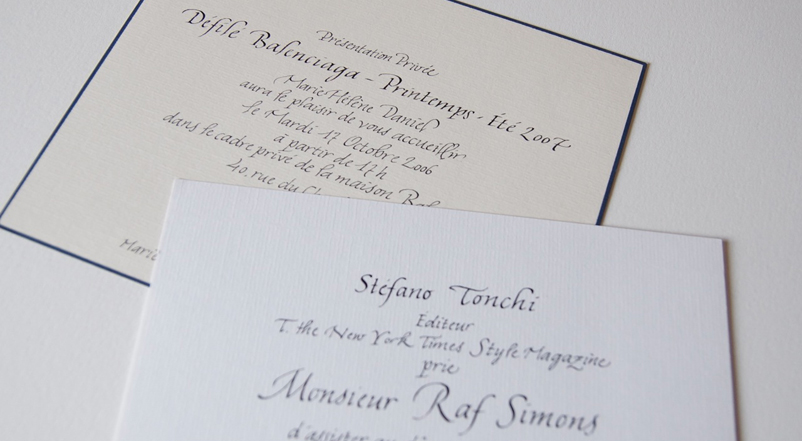 Présentation Privée
Défilé Balenciaga - Printemps - Été 2007
Marie-Hélène Daniel
aura le plaisir de vous accueillir
le Mardi 17 Octobre 2006
à partir de 17h
dans le cadre privé de la maison
40, rue du
Stéfano Tonchi
Éditeur
T. the New York Times Style Magazine
prie
Monsieur Raf Simons
d'assister